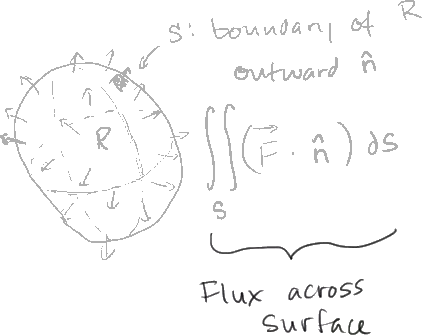 S: boundary of R
outward n̂
R
∬ (F⃗ · n̂) dS
S
Flux across
surface